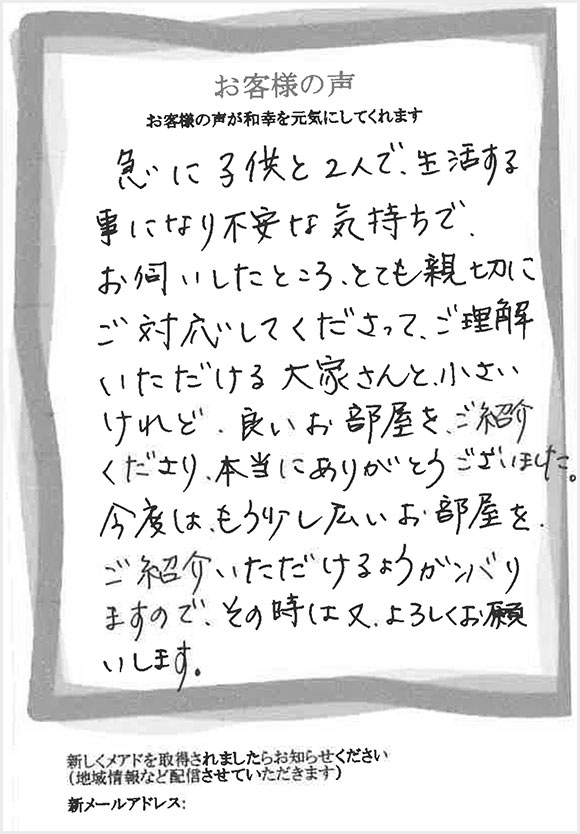 お客様の声
お客様の声が和幸を元気にしてくれます
急に子供と2人で、生活する
事になり不安な気持ちで、
お伺いしたところ、とても親切に
ご対応してくださって、ご理解
いただける大家さんと、小さい
けれど、良いお部屋を、ご紹介
くださり、本当にありがとうございました。
今度は、もう少し広いお部屋を、
ご紹介いただけるようがンバり
ますので、その時は又、よろしくお願
いします。
新しくメアドを取得されましたらお知らせください
（地域情報など配信させていただきます）
新メールアドレス：